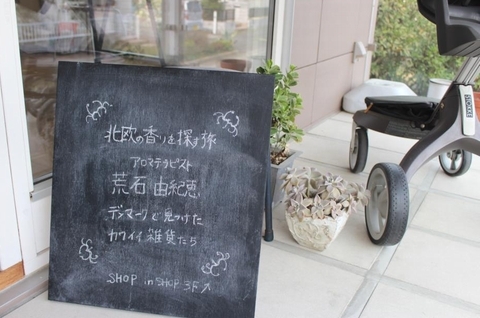 北欧の香りを探す旅
アロマテラピスト
荒石 由紀恵
デンマークで見つけた
カワイイ 雑貨たち
SHOP in SHOP 3F ↗
STOKKE